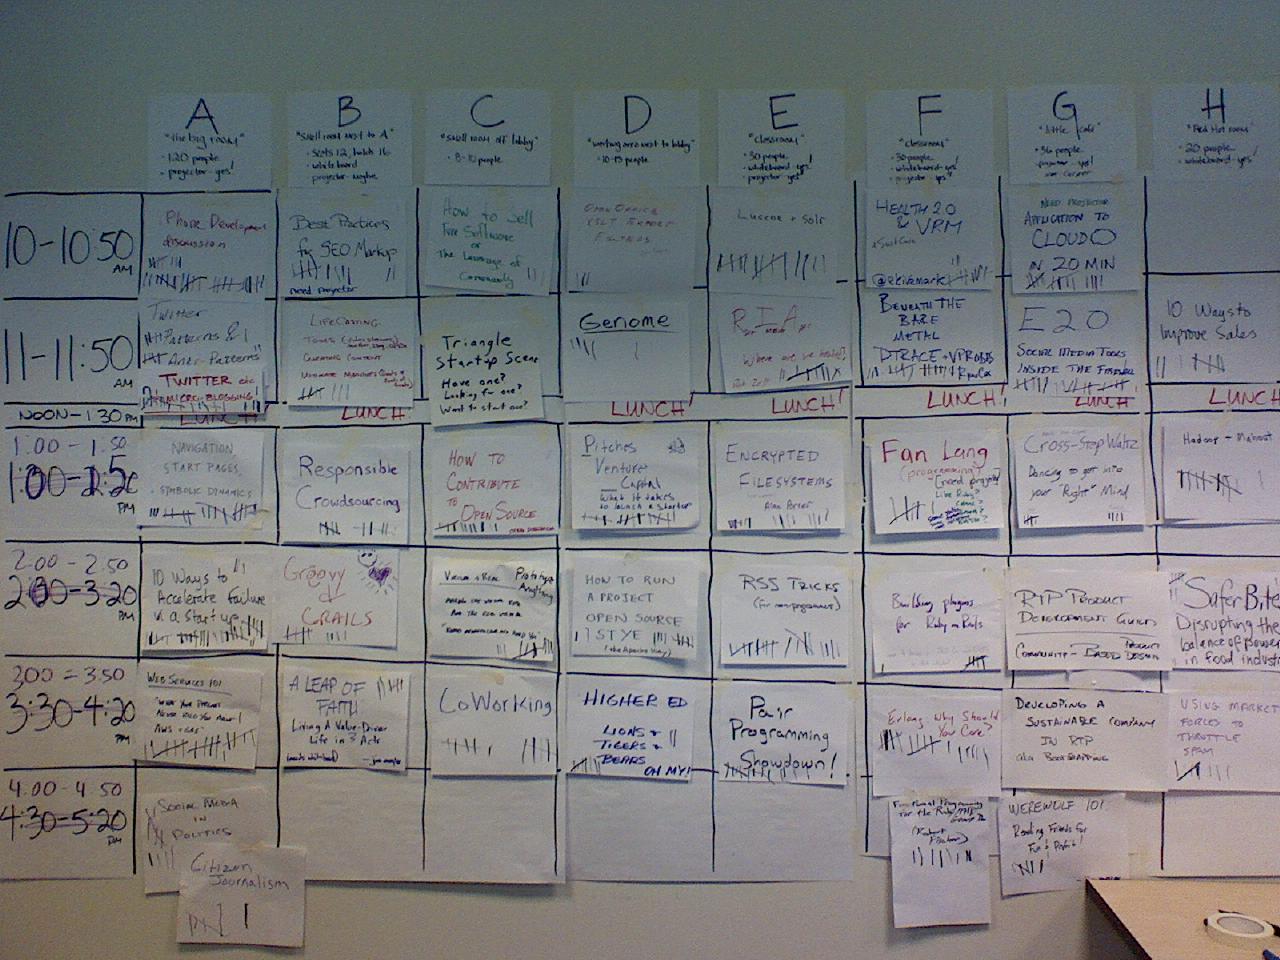 A
"the big room"
120 people
projector-yes!
B
"small room next to A"
seats 12, holds 16
whiteboard
projector-maybe
C
"small room off lobby"
8-10 people
D
"meeting area next to lobby"
10-15 people
E
"classroom"
30 people
whiteboard-yes!
projector yes!
F
"classroom"
30 people
whiteboard-yes!
projector yes!
G
"little cafe"
36 people
projector-yes!
H
"Red Hat room"
20 people
whiteboard-yes!
10-10:50
AM
Phone Development
discussion
Best Practices
for SEO Markup
need projector
How to Sell
Free Software
or
The Leverage of
Community
OPEN OFFICE
XSLT EXPORT
Lucene + Solr
HEALTH 2.0
& VRM
NEED PROJECTOR
APPLICATION TO
CLOUD
IN 20 MIN
11-11:50
AM
Twitter
Patterns &
Anti-Patterns"
TWITTER etc
MICRO-BLOGGING
LIFECASTING
Triangle
Startup Scene
Have one?
Looking for one?
Want to start one?
Genome
RIA
Where are we headed?
BENEATH THE
BARE
METAL
DTRACE + VPROBES
E20
SOCIAL MEDIA TOOLS
INSIDE THE FIREWALL
10 Ways to
Improve Sales
NOON-1:30 PM
LUNCH!
LUNCH!
LUNCH!
LUNCH!
LUNCH!
LUNCH
LUNCH
1:00-1:50
PM
NAVIGATION
START PAGES
SYMBOLIC DYNAMICS
Responsible
Crowdsourcing
HOW TO
CONTRIBUTE
TO
OPEN SOURCE
Pitches
Venture
Capital
What it takes
to launch a startup
ENCRYPTED
FILESYSTEMS
Fan Lang
(programming)
(need projector)
Like Ruby?
Cross-Step Waltz
Dancing to get into
your "Right" Mind
Hadoop - Mahout
2:00-2:50
2:00-3:20
PM
10 Ways to
Accelerate Failure
in a Startup
Groovy
GRAILS
Prototype
Anything
HOW TO RUN
A PROJECT
OPEN SOURCE
STYLE
(the Apache Way)
RSS TRICKS
(for non-programmers)
Building plugins
for Ruby on Rails
RTP PRODUCT
DEVELOPMENT GUILD
COMMUNITY-BASED DESIGN
SaferBite
Disrupting the
balance of power
in food industry
3:00-3:50
3:30-4:20
PM
WEB SERVICES 101
A LEAP OF
FAITH
Living A Value-Driven
Life in 3 Acts
CoWorking
HIGHER ED
LIONS &
TIGERS &
BEARS
OH MY!
Pair
Programming
Showdown!
Erlang Why Should
You Care?
DEVELOPING A
SUSTAINABLE COMPANY
IN RTP
aka BOOTSTRAPPING
USING MARKET
FORCES TO
THROTTLE
SPAM
4:00-4:50
4:30-5:20
PM
SOCIAL MEDIA
IN
POLITICS
Citizen
Journalism
Functional Programming
for the Ruby
WEREWOLF 101
Reading Friends for
Fun & Profit!